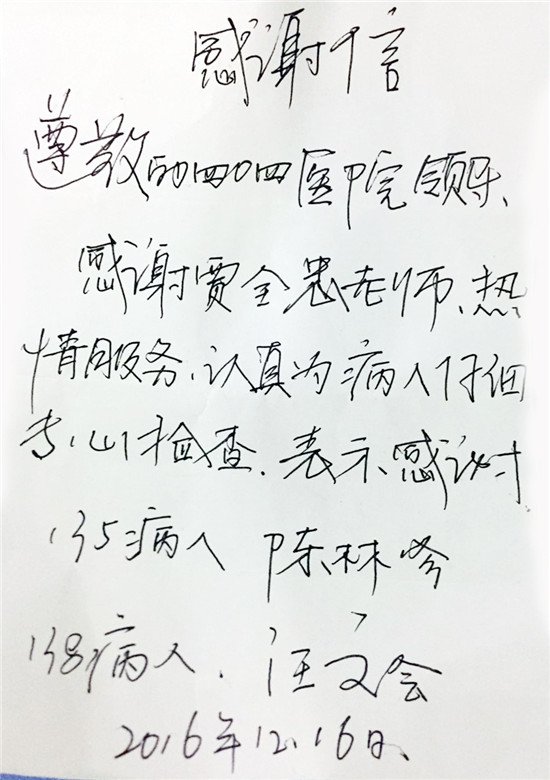 感谢信
尊敬的四0四医院领导、
感谢贾全老师、热
情服务、认真为病人仔细
专心检查、表示感谢
135病人 陈林
138病人、汪文会
2016年12.16日、